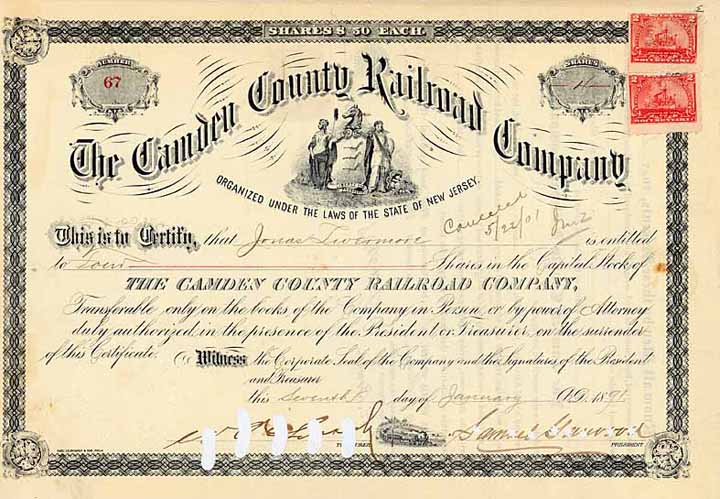 SHARES $ 50 EACH.
NUMBER
67
SHARES
4
2 2
2 2
The Camden County Railroad Company
ORGANIZED UNDER THE LAWS OF THE STATE OF NEW JERSEY.
Canceled
5/22/01
This is to Certify, that Jonas Livermore is entitled
to Four Shares in the Capital Stock of
THE CAMDEN COUNTY RAILROAD COMPANY,
Transferable only on the books of the Company in Person or by power of Attorney
duly authorized in the presence of the President or Treasurer on the surrender
of this Certificate. Witness the Corporate Seal of the Company and the Signatures of the President
and Treasurer
this Seventh day of January A.D. 1891.
TREASURER
Samuel
PRESIDENT